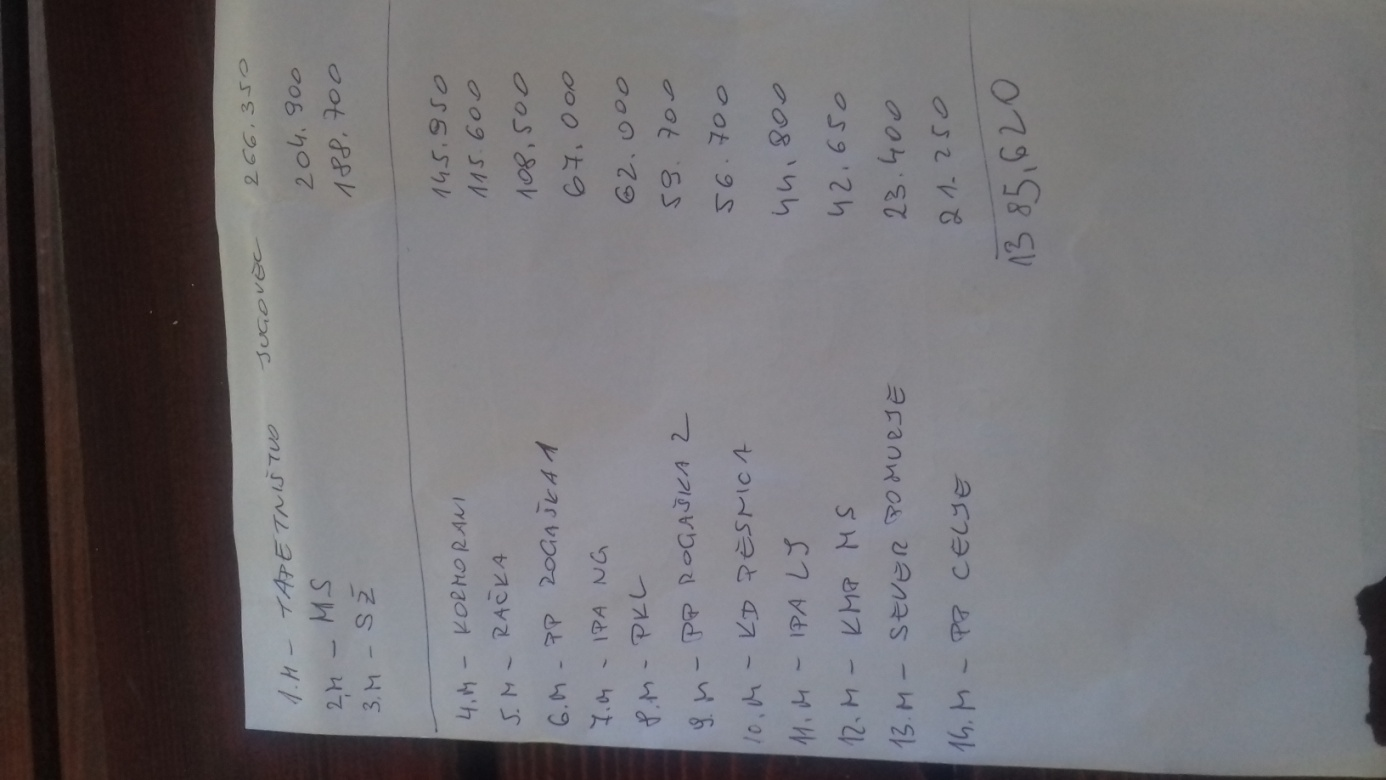 1.M - TAPETNIŠTVO JUGOVEC 266.350
2.M - MS 204.900
3.M - SŽ 188.700
4.M - KORMORANI 145.950
5.M - RAČKA 115.600
6.M - PP ROGAŠKA 1 108.500
7.M - IPA NG 67.000
8.M - PKL 62.000
9.M - PP ROGAŠKA 2 59.700
10.M - KD PESNICA 56.700
11.M - IPA LJ 44.800
12.M - KMP MS 42.650
13.M - SEVER POMURJE 23.400
14.M - PP CELJE 21.250
1385,620